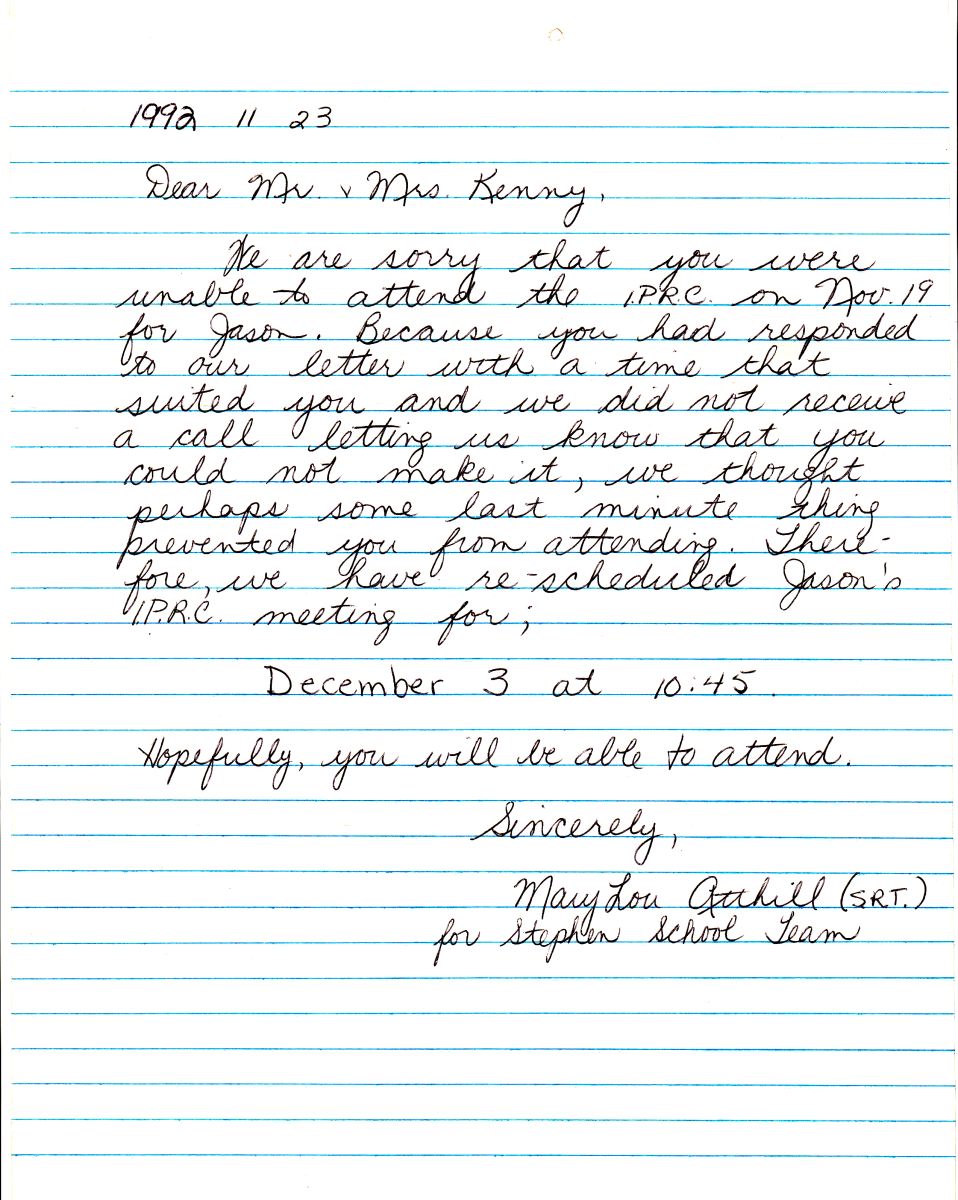 1992 11 23
Dear Mr. & Mrs. Kenny,
We are sorry that you were
unable to attend the I.P.R.C. on Nov. 19
for Jason. Because you had responded
to our letter with a time that
suited you and we did not receive
a call letting us know that you
could not make it, we thought
perhaps some last minute thing
prevented you from attending. There-
fore, we have re-scheduled Jason's
I.P.R.C. meeting for;
December 3 at 10:45.
Hopefully, you will be able to attend.
Sincerely,
Mary Lou (S.R.T.)
for Stephen School Team